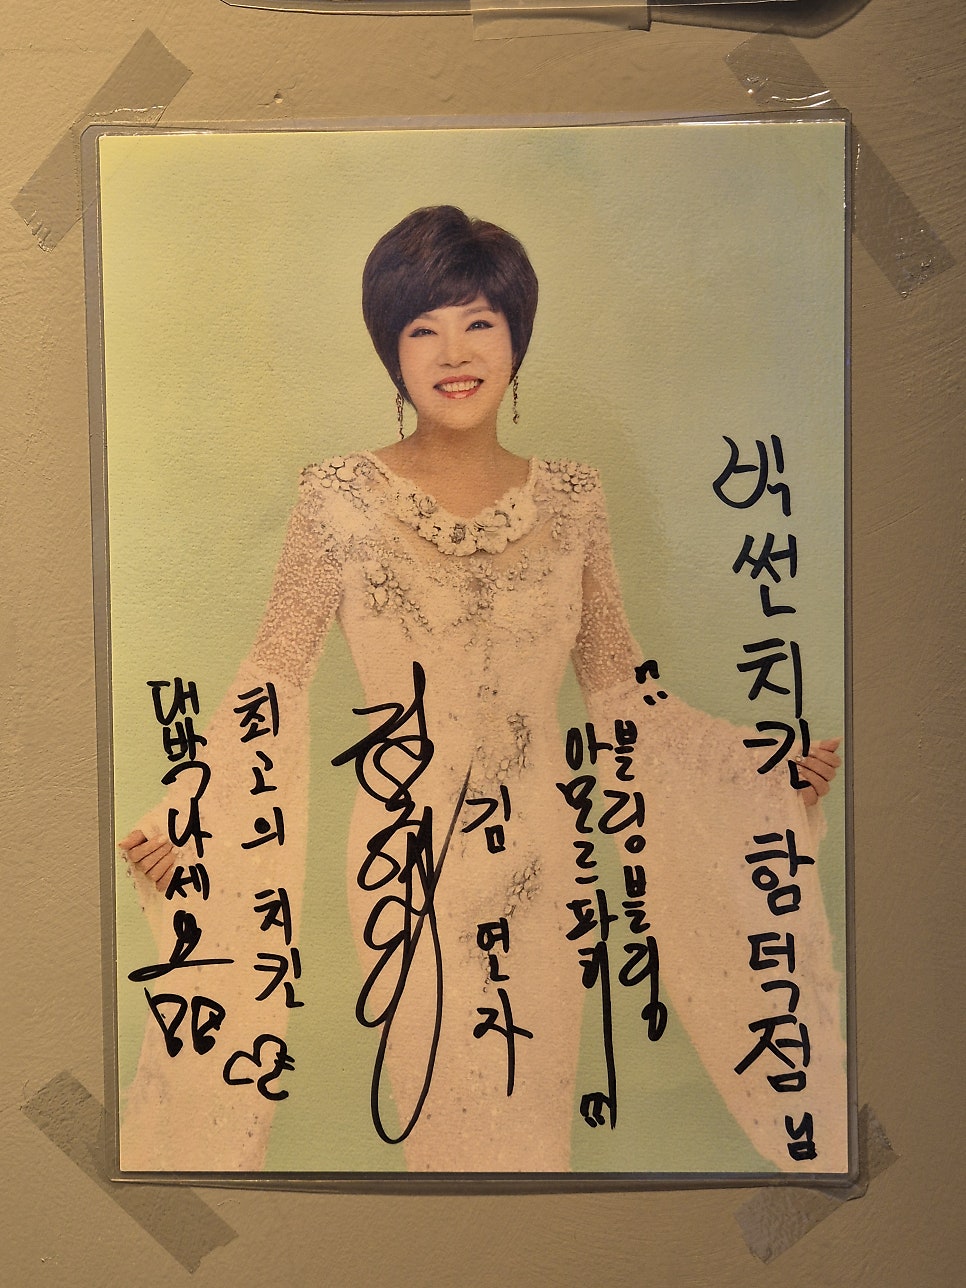 빅썬치킨 함덕점님
"블링블링
아모르파티"
김연자
최고의 치킨
대박나세요